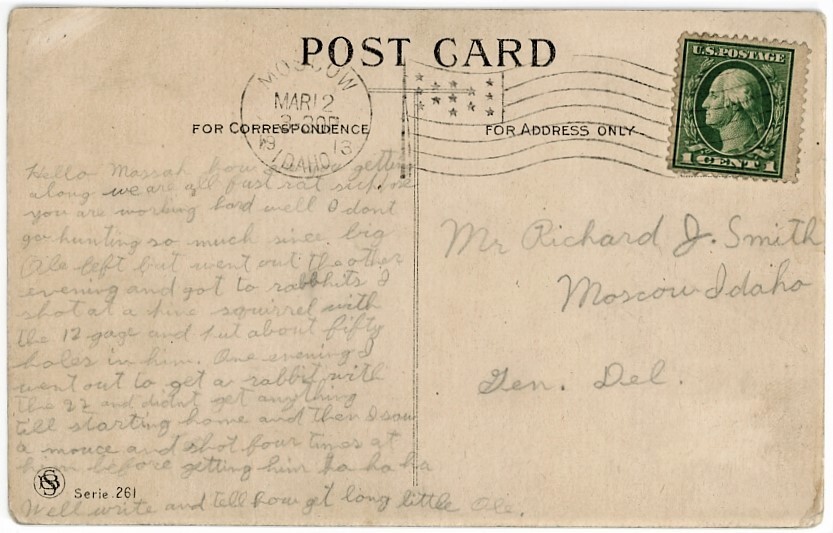 POST CARD
MOSCOW
MAR 12
3-30P
1913
IDAHO
U.S. POSTAGE
1 CENT 1
FOR CORRESPONDENCE
FOR ADDRESS ONLY
Hello Massah how getting
along we are all fust rat suppose
you are working hard well I dont
go hunting so much since big
Ole left but went out the other
evening and got to rabbits I
shot at a pine squirrel with
the 12 gage and put about fifty
holes in him. One evening I
went out to get a rabbit with
the 22 and didnt get anything
till starting home and then I saw
a mouce and shot four times at
him before getting him ha ha ha
Well write and tell how get long little Ole.
Mr Richard J. Smith
Moscow Idaho
Gen. Del.
Serie 261